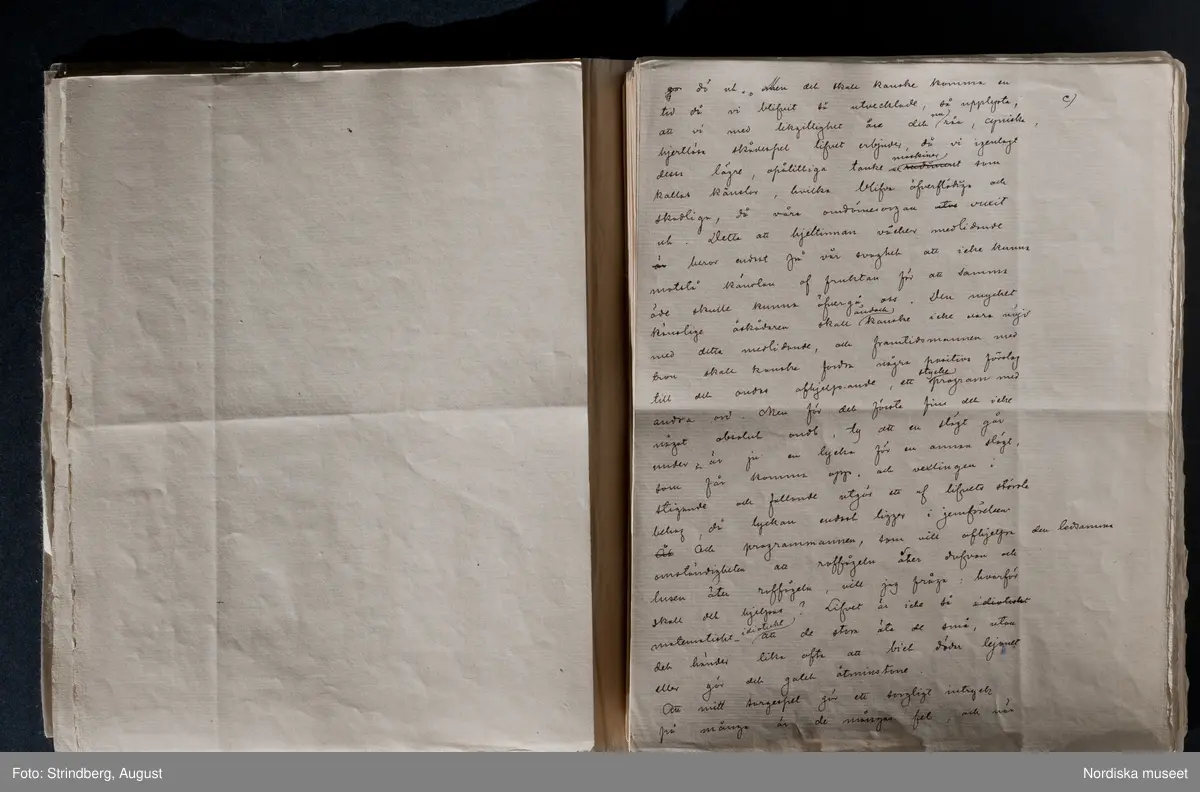 går då ut. Men det skall kanske komma en
c)
tid då vi blifvit så utvecklade, så upplysta,
att vi med likgiltighet åse det nu råa, cyniska,
hjertlösa skådespel lifvet erbjuder, då vi igenlagt
dessa lägre, opålitliga tanke maskiner som
kallas känslor, hvilka blifva öfverflödiga och
skadliga, då våra omdömesorgan vuxit
ut. Detta att hjeltinnan väcker medlidande
är beror endast på vår svaghet att icke kunna
motstå känslan af fruktan för att samma
öde skulle kunna öfvergå oss. Den mycket
känslige åskådaren skall ändock kanske icke vara nöjd
med detta medlidande, och framtidsmannen med
tron skall kanske fordra några positiva förslag
till det ondas afhjelpande, ett stycke program med
andra ord. Men för det första fins det icke
något absolut ondt, ty att en slägt går
under är ju en lycka för en annan slägt,
som får komma opp, och vexlingen i
stigande och fallande utgör ett af lifvets största
behag, då lyckan endast ligger i jemförelsen
Och programmannen, som vill afhjelpa den ledsamma
omständigheten att roffågeln äter dufvan och
lusen äter roffågeln, vill jag fråga: hvarför
skall det hjelpas? Lifvet är icke så idiotiskt
matematiskt-idiotiskt att de stora äta de små, utan
det händer lika ofta att biet dödar lejonet
eller gör det galet åtminstone.
Att mitt sorgespel gör ett sorgligt intryck
på många är de mångas fel, och när
Foto: Strindberg, August
Nordiska museet